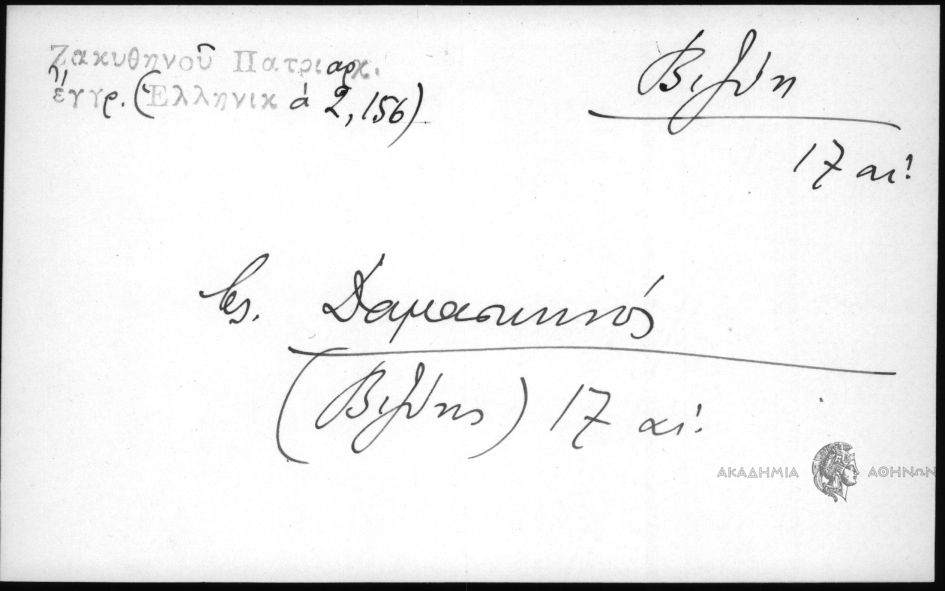 Ζακυθηνοῦ Πατριαρχ.
ἔγγρ. (Ἑλληνικά 2, 156)
Βιζύη
17 αι!
Δαμασκηνός
(Βιζύης) 17 αι!
ΑΚΑΔΗΜΙΑ ΑΘΗΝΩΝ